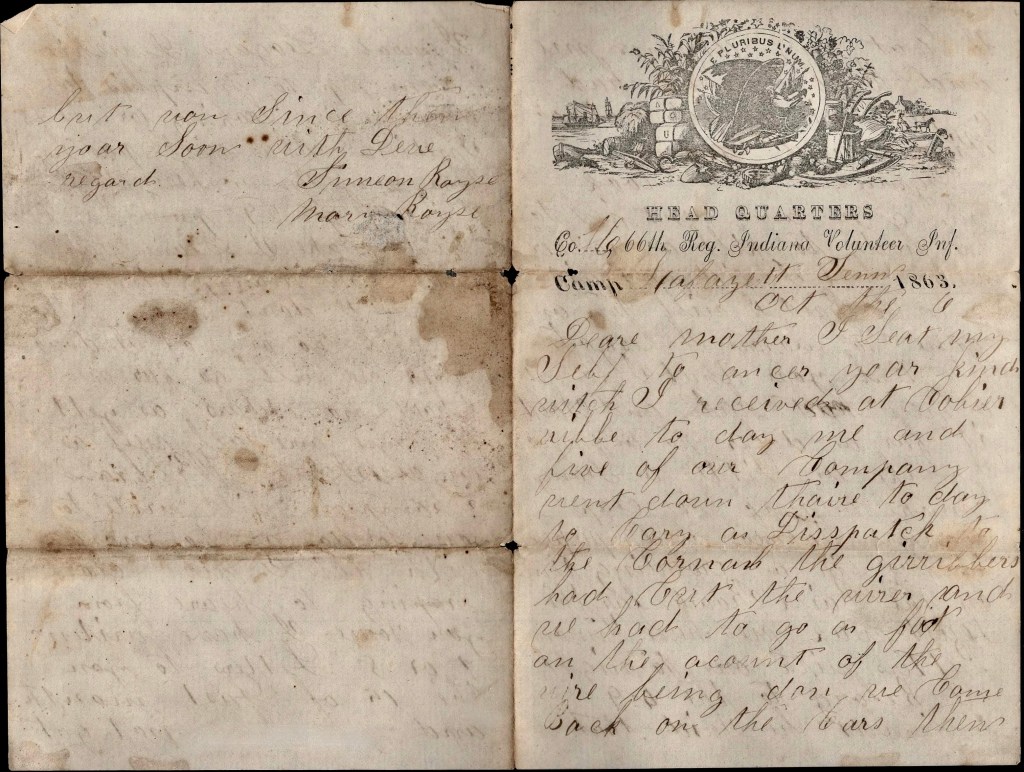 but non Since then
your Soon with Deue
regard Simeon Royse
Mary Royse
E PLURIBUS UNUM
HEAD QUARTERS
Co. 66th Reg. Indiana Volunteer Inf.
Camp Lafayett Tenn 1863.
Oct the 6
Deare mother I Seat my
Self to ancer your kind
witch I received at Colier
vibbe to day me and
five of our Company
went down thaire to day
to Cary as Disspatch to
the Cornah the girrichers
had Cut the wirer and
we had to go a foot
on the acount of the
wire being don we Came
Back on the Cars then